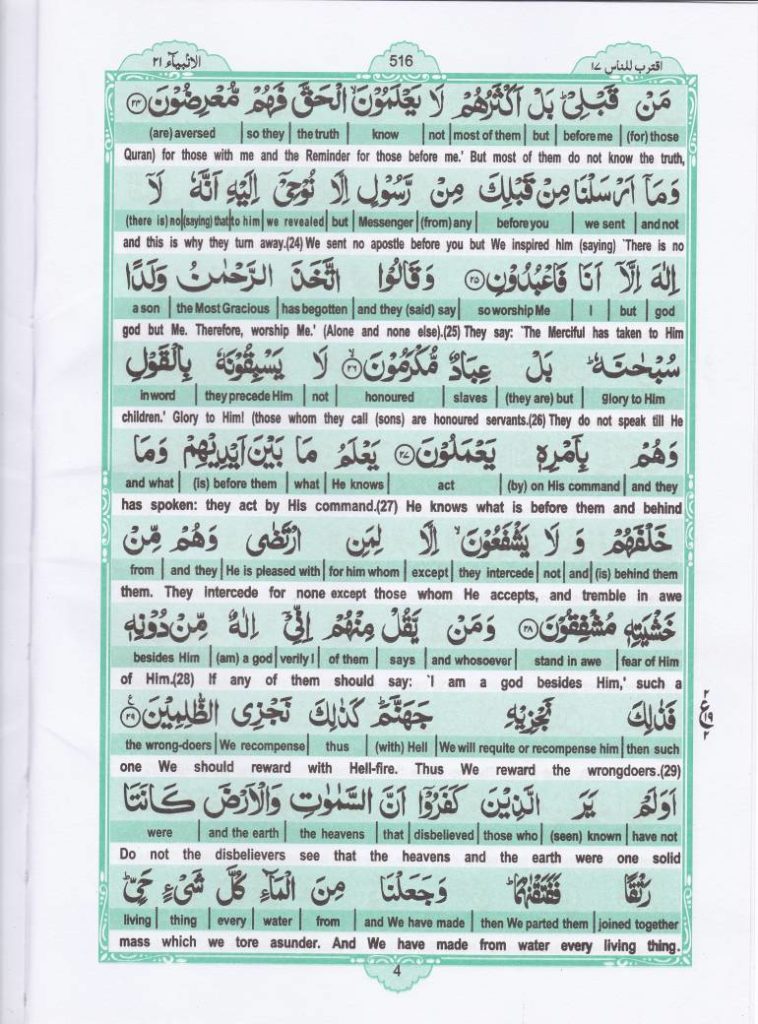 اقترب للناس ١٧
516
الانبیآء ٢١
مَنْ قَبْلِیْ ؕ بَلْ اَكْثَرُهُمْ لَا یَعْلَمُوْنَ ۙ الْحَقَّ فَهُمْ مُّعْرِضُوْنَ ۝٢٤
(are) aversed | so they | the truth | know | not | most of them | but | before me | (for) those
Quran) for those with me and the Reminder for those before me.' But most of them do not know the truth,
وَمَاۤ اَرْسَلْنَا مِنْ قَبْلِكَ مِنْ رَّسُوْلٍ اِلَّا نُوْحِیْۤ اِلَیْهِ اَنَّهٗ لَاۤ
(there is) no | (saying) that | to him | we revealed | but | Messenger | (from) any | before you | we sent | and not
and this is why they turn away.(24) We sent no apostle before you but We inspired him (saying) `There is no
اِلٰهَ اِلَّاۤ اَنَا فَاعْبُدُوْنِ ۝٢٥ وَقَالُوا اتَّخَذَ الرَّحْمٰنُ وَلَدًا
a son | the Most Gracious | has begotten | and they (said) say | so worship Me | I | but | god
god but Me. Therefore, worship Me.' (Alone and none else).(25) They say: `The Merciful has taken to Him
سُبْحٰنَهٗ ؕ بَلْ عِبَادٌ مُّكْرَمُوْنَ ۙ۝٢٦ لَا یَسْبِقُوْنَهٗ بِالْقَوْلِ
in word | they precede Him | not | honoured | slaves | (they are) but | glory to Him
children.' Glory to Him! (those whom they call (sons) are honoured servants.(26) They do not speak till He
وَهُمْ بِاَمْرِهٖ یَعْمَلُوْنَ ۝٢٧ یَعْلَمُ مَا بَیْنَ اَیْدِیْهِمْ وَمَا
and what | (is) before them | what | He knows | act | (by) on His command | and they
has spoken: they act by His command.(27) He knows what is before them and behind
خَلْفَهُمْ وَ لَا یَشْفَعُوْنَ ۙ اِلَّا لِمَنِ ارْتَضٰی وَهُمْ مِّنْ
from | and they | He is pleased with | for him whom | except | they intercede | not | and | (is) behind them
them. They intercede for none except those whom He accepts, and tremble in awe
خَشْیَتِهٖ مُشْفِقُوْنَ ۝٢٨ وَمَنْ یَّقُلْ مِنْهُمْ اِنِّیْۤ اِلٰهٌ مِّنْ دُوْنِهٖ
besides Him | (am) a god | verily I | of them | says | and whosoever | stand in awe | fear of Him
of Him.(28) If any of them should say: `I am a god besides Him,' such a
فَذٰلِكَ نَجْزِیْهِ جَهَنَّمَ ؕ كَذٰلِكَ نَجْزِی الظّٰلِمِیْنَ ۝٢٩ ع
٢ ع ١٩ ٢
the wrong-doers | We recompense | thus | (with) Hell | We will requite or recompense him | then such
one We should reward with Hell-fire. Thus We reward the wrongdoers.(29)
اَوَلَمْ یَرَ الَّذِیْنَ كَفَرُوْۤا اَنَّ السَّمٰوٰتِ وَالْاَرْضَ كَانَتَا
were | and the earth | the heavens | that | disbelieved | those who | (seen) known | have not
Do not the disbelievers see that the heavens and the earth were one solid
رَتْقًا فَفَتَقْنٰهُمَا ؕ وَجَعَلْنَا مِنَ الْمَآءِ كُلَّ شَیْءٍ حَیٍّ ؕ
living | thing | every | water | from | and We have made | then We parted them | joined together
mass which we tore asunder. And We have made from water every living thing.
4